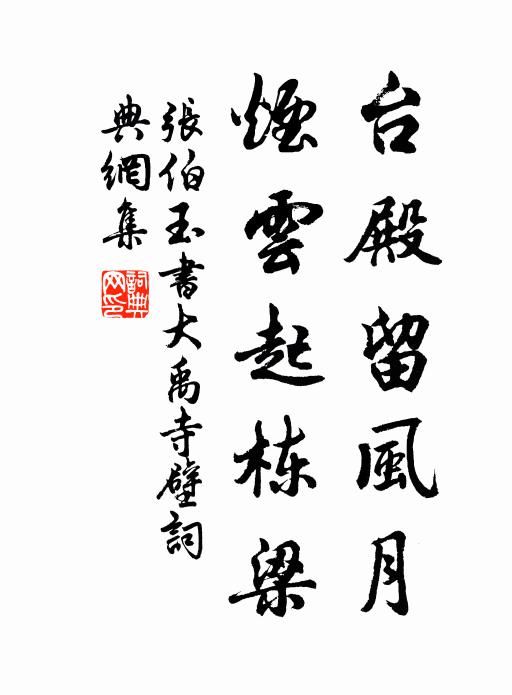 台殿留風月
煙雲起栋梁
張伯玉書大禹寺壁詞
典網集
詞典
网印